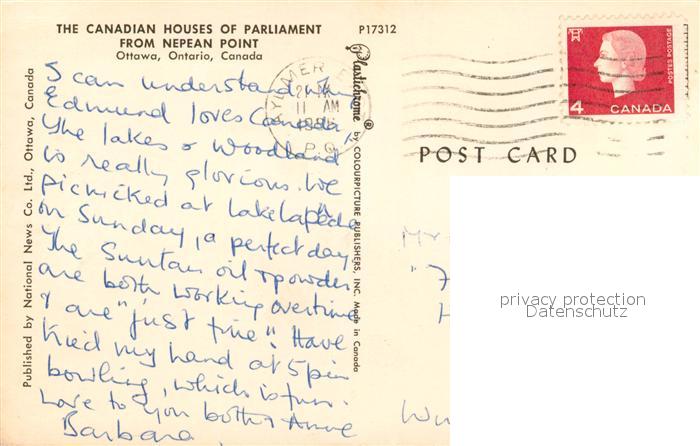 THE CANADIAN HOUSES OF PARLIAMENT
FROM NEPEAN POINT
Ottawa, Ontario, Canada
P17312
Published by National News Co. Ltd., Ottawa, Canada
Plastichrome ® by COLOURPICTURE PUBLISHERS, INC. Made in Canada
AYLMER E
11 AM
P.Q.
4
CANADA
POSTES POSTAGE
POST CARD
I can understand why
Edmund loves Canada,
The lakes & Woodland
is really glorious. We
picnicked at lake
on Sunday, a perfect day
The Suntan oil & powder
are both working overtime
& are "just fine". Have
tried my hand at 5 pin
bowling, which is fun.
Love to you both & Anne
Barbara.
Mr
"7
H
privacy protection
Datenschutz